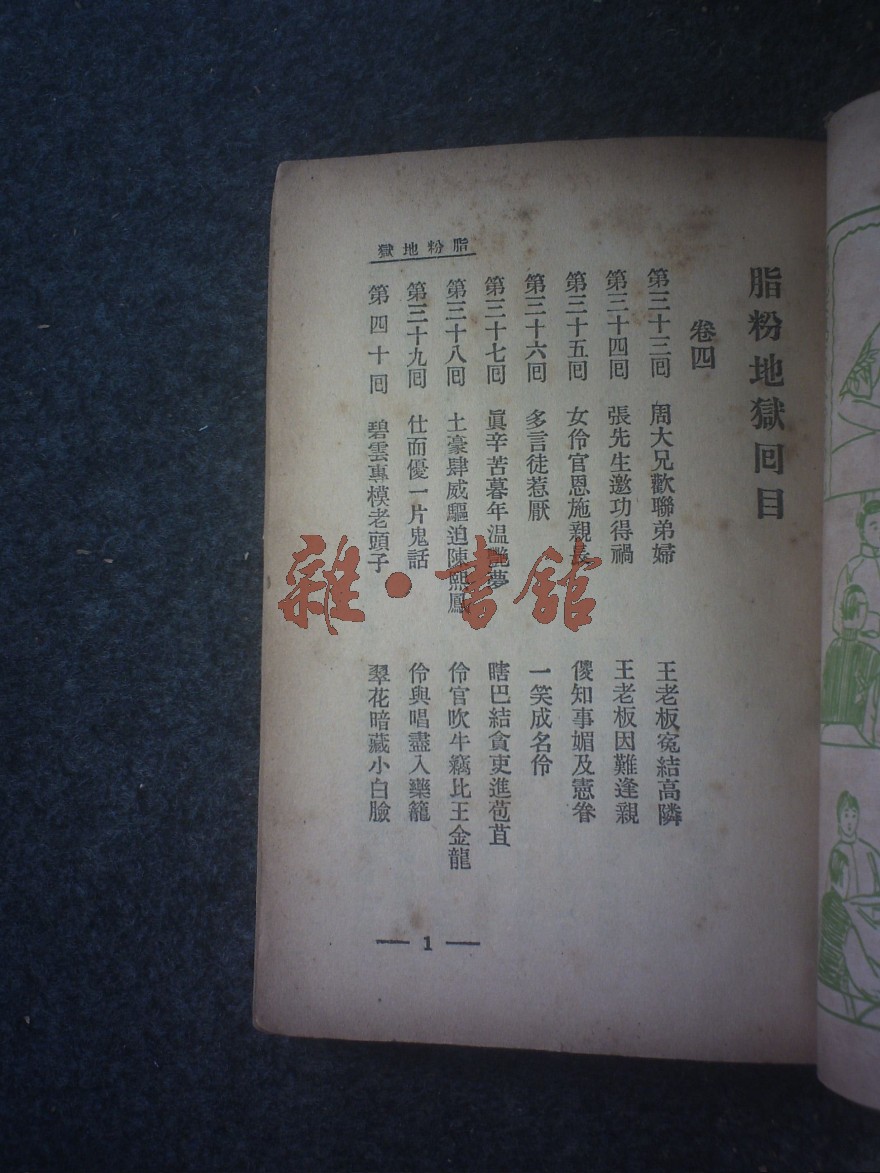 脂粉地獄囘目
卷四
第三十三囘 周大兄歡聯弟婦 王老板寃結高隣
第三十四囘 張先生邀功得禍 王老板因難逢親
第三十五囘 女伶官恩施親長 傻知事媚及憲眷
第三十六囘 多言徒惹厭 一笑成名伶
第三十七囘 眞辛苦暮年温艷夢 瞎巴結貪吏進苞苴
第三十八囘 土豪肆威驅迫陳熙鳳 伶官吹牛竊比王金龍
第三十九囘 仕而優一片鬼話 伶與唱盡入藥籠
第四十囘 碧雲專模老頭子 翠花暗藏小白臉
脂粉地獄
— 1 —
雜·書館